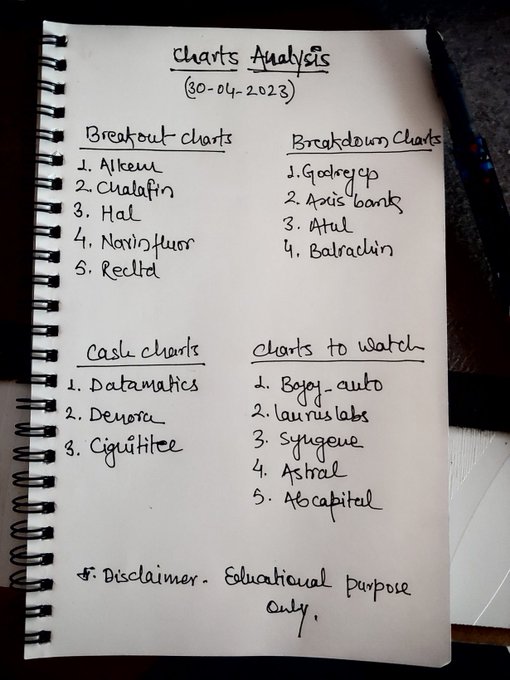 Charts Analysis
(30-04-2023)
Breakout charts
1. Alkem
2. Cholafin
3. Hal
4. Navinfluor
5. Recltd
Breakdown Charts
1. Godrejcp
2. Axis bank
3. Atul
4. Balrachin
Cash charts
1. Datamatics
2. Denora
3. Cigniititee
Charts to watch
1. Bajaj_auto
2. lauruslabs
3. Syngene
4. Astral
5. Abcapital
Disclaimer - Educational purpose
only.